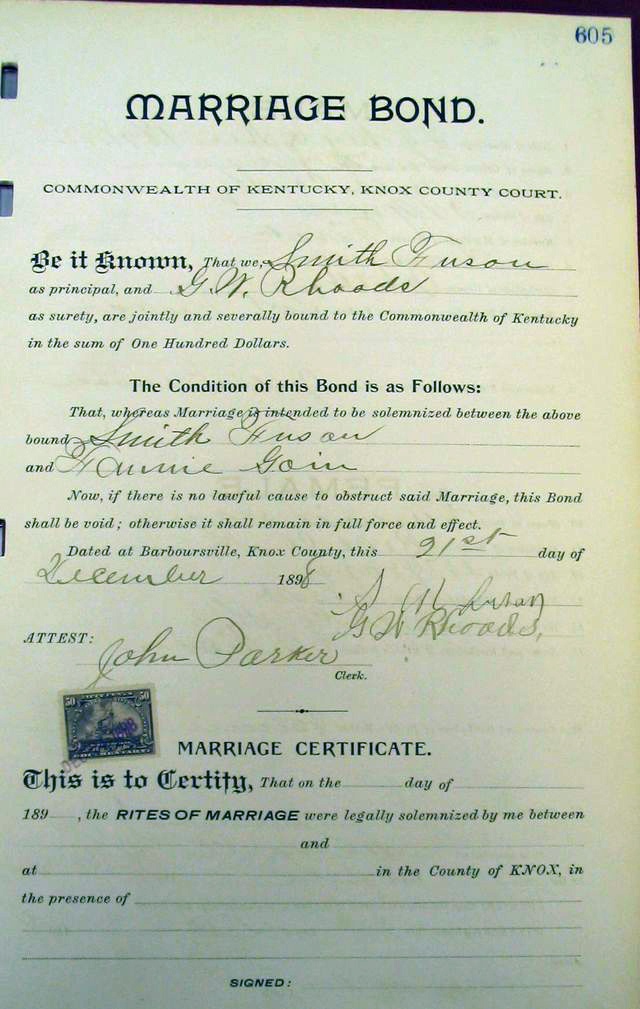 605
MARRIAGE BOND.
COMMONWEALTH OF KENTUCKY, KNOX COUNTY COURT.
Be it Known, That we, Smith Fuson
as principal, and G. W. Rhoads
as surety, are jointly and severally bound to the Commonwealth of Kentucky
in the sum of One Hundred Dollars.
The Condition of this Bond is as Follows:
That, whereas Marriage is intended to be solemnized between the above
bound Smith Fuson
and Fannie Goin
Now, if there is no lawful cause to obstruct said Marriage, this Bond
shall be void; otherwise it shall remain in full force and effect.
Dated at Barboursville, Knox County, this 21st day of
December 1898
Fuson
G W Rhoads,
ATTEST:
John Parker
Clerk.
50 50
1898
MARRIAGE CERTIFICATE.
This is to Certify, That on the day of
189 , the RITES OF MARRIAGE were legally solemnized by me between
and
at in the County of KNOX, in
the presence of
SIGNED: